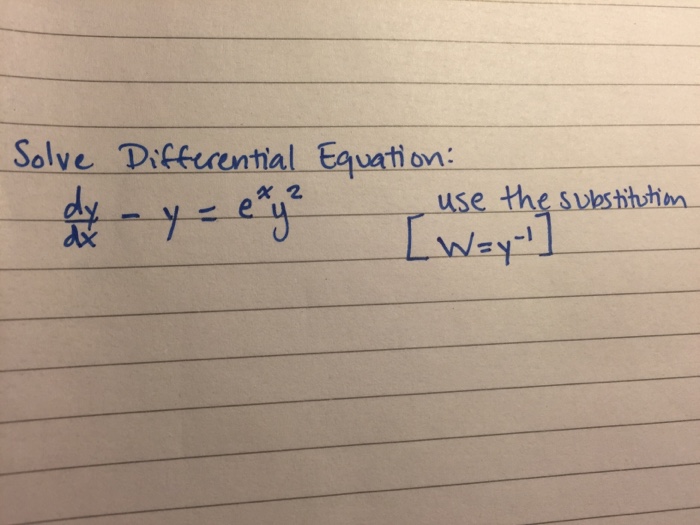 Solve Differential Equation:
dy/dx - y = eˣy² use the substitution
[W=y⁻¹]